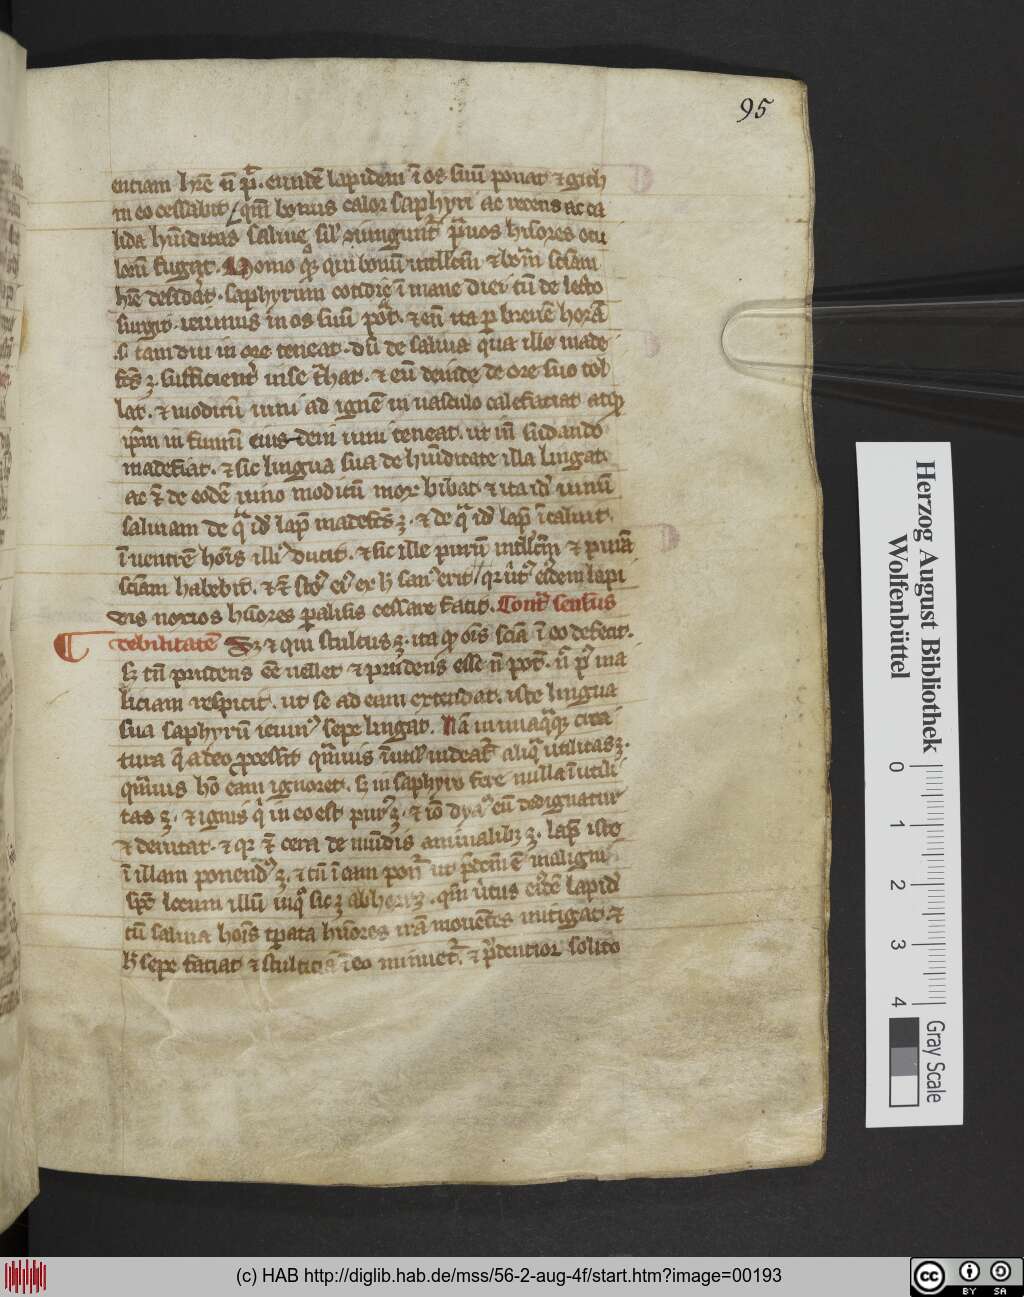 95
entiam hr̄e n̄ p̄t. eundē lapidem ī os suū ponat ⁊ gith
in eo cessabit qm̄ bonus calor saphyri ac recens ac ca
lida hūiditas saliue
lorū fugat. Homo qui bonū intellc̄m ⁊ bonam sciam
hr̄e desid'at. saphyrum cotidie ī mane diei cū de lecto
surgit. ieiunus in os suū pōt. ⁊ eū ita p breuē horā
s tam diu in ore teneat. dū de saliua qua ille made
sufficient' in se t͂hat. ⁊ eū deinde de ore suo tol
lat. ⁊ modicū uini ad ignē in uasculo calefaciat atqꝫ
ip̄m in fumū eius dem uini teneat. ut in sudando
madefiat. ⁊ sic lingua sua de hūiditate illa lingat.
ac de eodē uino modicū mox bibat. ⁊ ita id' uinū
saliuam de q̄ id' lap̄ madefc̄s ꝫ. ⁊ de q̄ id' lap̄ īcaluit.
ī uentrē hoīs illi' ducit. ⁊ sic ille purū intllc̄m ⁊ purā
sciam habebit. ⁊ ex h san' erit qꝛ ei'dem lapi
dis noxios hūores cessare facit. Contʳ sensus
debilitatē Sꝫ ⁊ qui stultus ꝫ. ita qꝫ oīs sciā ī eo defecit.
sꝫ tn̄ prudens eē uellet ⁊ prudens esse n̄ pot. n̄ ma
liciam respicit. ut se ad eam extendat. iste lingua
sua saphyrū ieiun' sepe lingat. Nā in unaq̄qꝫ crea
tura q̄ adeo pcessit qm̄uis īutil' uideat' aliq̄ utilitas ꝫ.
qm̄uis hō eam ignoret. sꝫ in saphyro fere nulla īutili
tas ꝫ. ⁊ ignis q' in eo est pur' ꝫ. ⁊ iō dya' eū dedignatur
⁊ deuitat. ⁊ qꝛ cera de mūdis animalibꝫ ꝫ. lap̄ iste
ī illam ponend' ꝫ. ⁊ tū ī eam ut pdcm̄ ē malign'
sp̄c locum illū abhorret. qm̄ ei'dē lapid'
cū saliua hoīs tpata hūores irā mouētes mitigat. ⁊
h sepe faciat ⁊ stulticia ī eo minuet'. ⁊ p'dentior solito
Herzog August Bibliothek
Wolfenbüttel
0 1 2 3 4
Gray Scale
(c) HAB http://diglib.hab.de/mss/56-2-aug-4f/start.htm?image=00193
cc BY SA